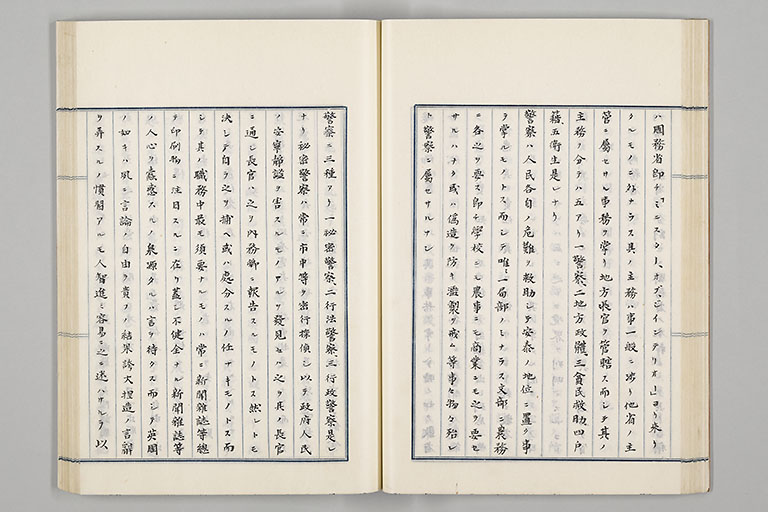 ハ國務省即チ「ミニストリ、オブ、ジ、インテリオ」ヨリ來リ
タルモノニ外ナラス其ノ主務ハ事一般ニ渉リ他省ノ主
管ニ屬セサル事務ヲ掌リ地方長官ヲ管轄ス而シテ其ノ
主務ヲ分テハ五アリ一警察、二地方政體、三貧民救助四戸
籍、五衛生是レナリ
警察ハ人民各自ノ危難ヲ救助シテ安泰ノ地位ニ置ク事
ヲ掌ルモノトス而シテ唯ニ一局部ノミナラス文部ニ農務
ニ各之ヲ要ス即チ學校ニモ農事ニモ商業ニモ之ヲ要セ
サルハナク或ハ偽造ヲ防キ濫製ヲ戒ム等事々物々殆ン
ト警察ニ屬セサルナシ
警察ニ三種アリ一秘密警察、二行法警察、三行政警察是レ
ナリ秘密警察ハ常ニ市中等ヲ密行探偵シ以テ政府人民
ノ安寧靜謐ヲ害スルモノアルヲ發見セハ之ヲ其ノ長官
ニ通シ長官ハ之ヲ内務卿ニ報告スルモノトス然レトモ
決シテ自ラ之ヲ捕ヘ或ハ處分スルノ任ナキモノトス而
シテ其ノ職務中最モ須要ナルモノハ常ニ新聞雜誌等總
テ印刷物ニ注目スルニ在リ蓋シ不健全ナル新聞雜誌等
ノ人心ヲ蠱惑スルノ泉源タルハ言ヲ待タス而シテ英國
ノ如キハ夙ニ言論ノ自由ヲ貴フノ結果誇大捏造ノ言辭
ヲ弄スルノ慣習アルモ人智進ミ容易ニ之ニ迷ハサルヲ以